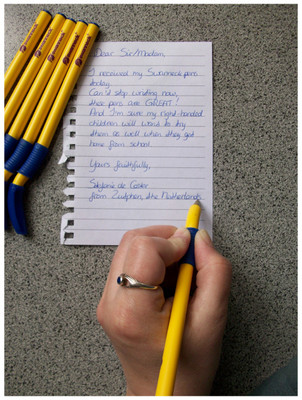 Dear Sir/Madam,
I received my Swanneck pens
today.
Can't stop writing now,
these pens are GREAT!
And I'm sure my right-handed
children will want to try
them as well when they get
home from school.
Yours faithfully,
Stefanie de
from Zutphen, the Netherlands